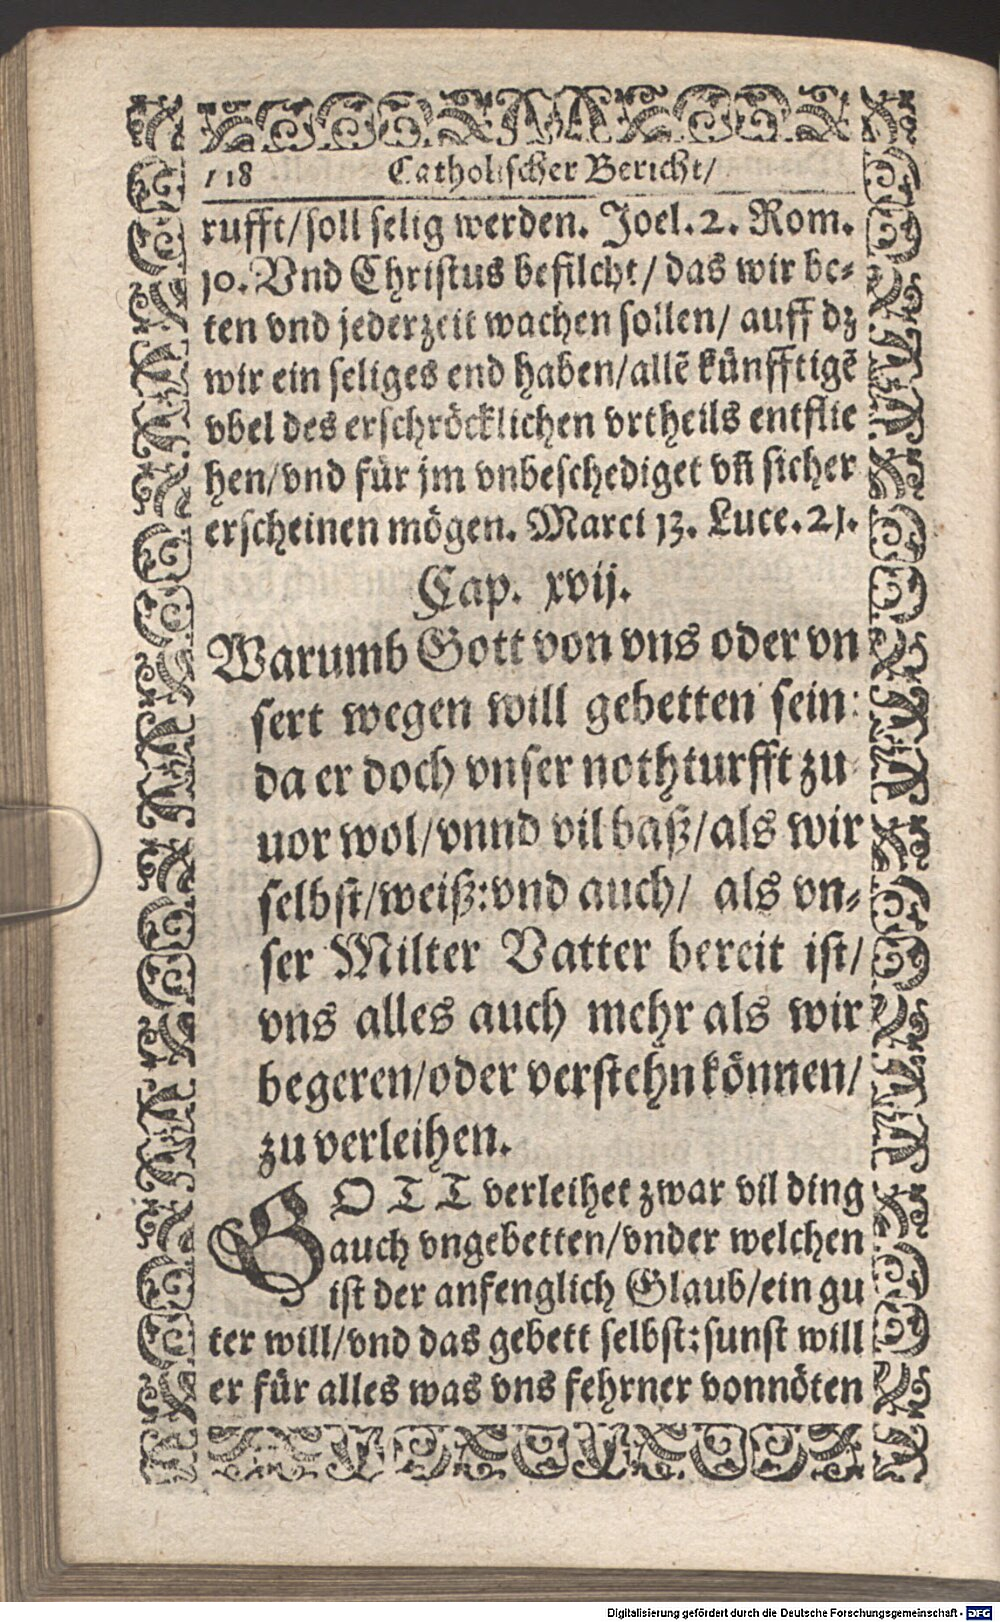 118 Catholischer Bericht/
rufft/soll selig werden. Joel. 2. Rom.
10. Vnd Christus befilcht/ das wir be-
ten vnd jederzeit wachen sollen/ auff dz
wir ein seliges end haben/allẽ künfftigẽ
vbel des erschröcklichen vrtheils entflie
hen/vnd für jm vnbeschediget vñ sicher
erscheinen mögen. Marci 13. Luce. 21.
Cap. xvij.
Warumb Gott von vns oder vn
sert wegen will gebetten sein:
da er doch vnser nothturfft zu
uor wol/vnnd vil baß/als wir
selbst/weiß:vnd auch/ als vn-
ser Milter Vatter bereit ist/
vns alles auch mehr als wir
begeren/oder verstehn können/
zu verleihen.
GOTT verleihet zwar vil ding
auch vngebetten/vnder welchen
ist der anfenglich Glaub/ein gu
ter will/vnd das gebett selbst:sunst will
er für alles was vns fehrner vonnöten
Digitalisierung gefördert durch die Deutsche Forschungsgemeinschaft - DFG